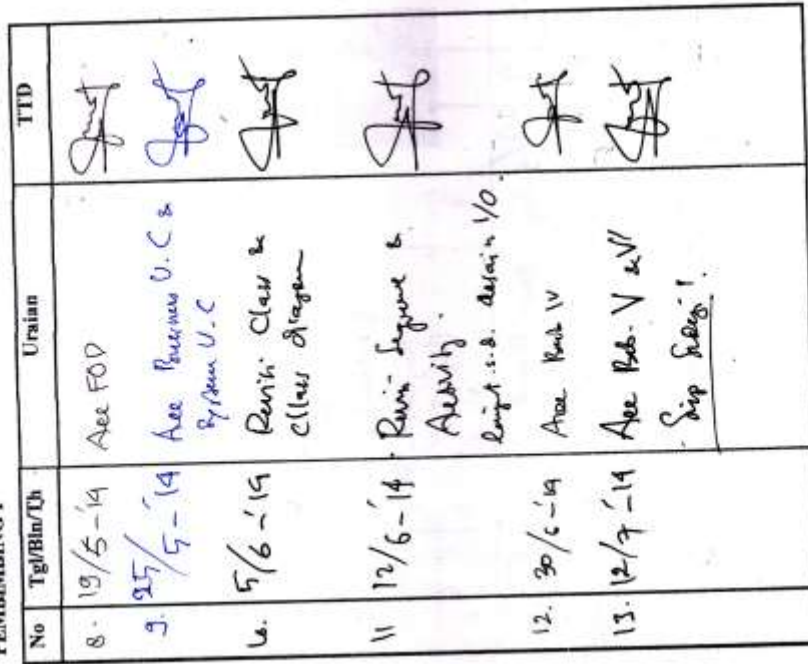 PEMBIMBING I
No Tgl/Bln/Th Uraian TTD
8. 19/5-'14 Acc FOD
9. 25/5-'14 Acc Bussiness U.C &
System U.C
10. 5/6-'14 Revisi Class &
Class diagram
11 12/6-'14 Revisi Sequence &
Activity.
lanjut s.d. desain I/O.
12. 30/6-'14 Acc Bab IV
13. 12/7-'14 Acc Bab. V & VI
Siap Sidang!